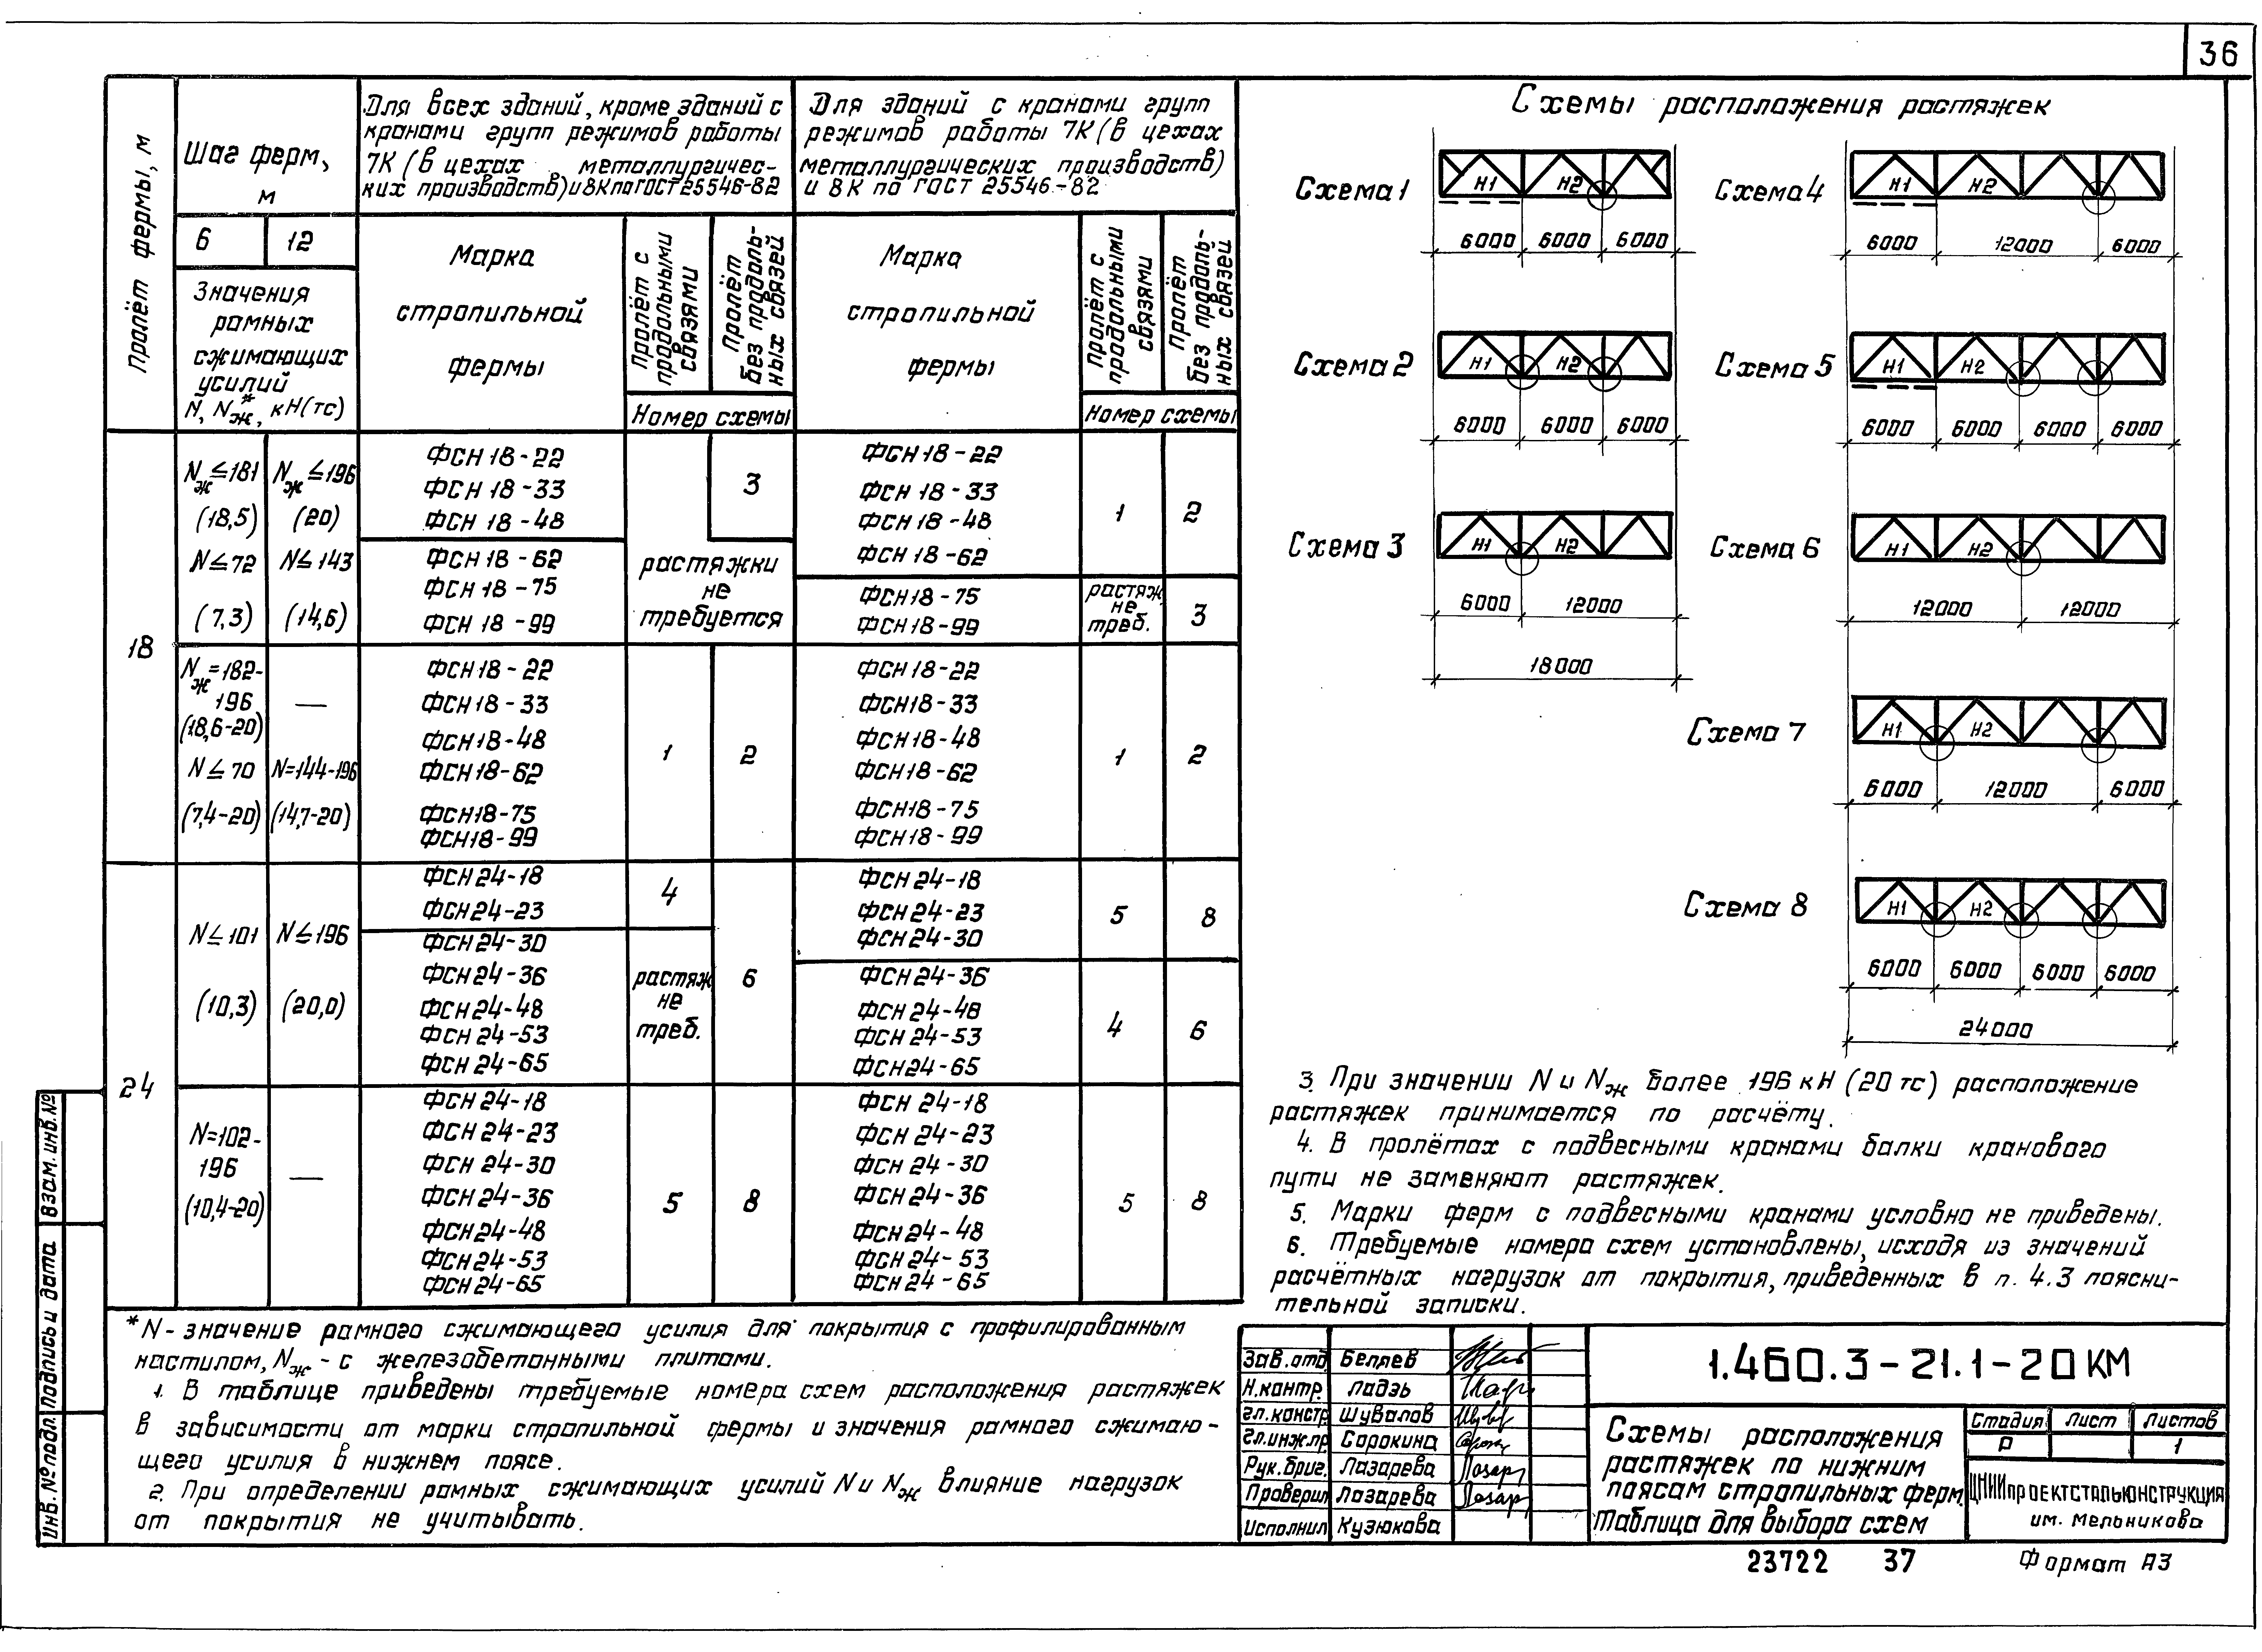 36
Пролёт фермы, м
Шаг ферм,
м
6
12
Значения
рамных
сжимающих
усилий
N, Nж*, кН(тс)
Для всех зданий, кроме зданий с
кранами групп режимов работы
7К (в цехах металлургичес-
ких производств) и 8К по ГОСТ 25546-82
Марка
стропильной
фермы
Пролёт с
продольными
связями
Пролёт
без продоль-
ных связей
Номер схемы
Для зданий с кранами групп
режимов работы 7К (в цехах
металлургических производств)
и 8К по ГОСТ 25546-82
Марка
стропильной
фермы
Пролёт с
продольными
связями
Пролёт
без продоль-
ных связей
Номер схемы
18
Nж≤181
(18,5)
N≤72
(7,3)
Nж≤196
(20)
N≤143
(14,6)
ФСН 18-22
ФСН 18-33
ФСН 18-48
3
ФСН 18-62
ФСН 18-75
ФСН 18-99
растяжки
не
требуется
ФСН 18-22
ФСН 18-33
ФСН 18-48
ФСН 18-62
1
2
ФСН18-75
ФСН18-99
растяж
не
треб.
3
Nж=182-
196
(18,6-20)
N≤70
(7,4-20)
—
N=144-196
(14,7-20)
ФСН18-22
ФСН18-33
ФСН18-48
ФСН18-62
ФСН18-75
ФСН18-99
1
2
ФСН18-22
ФСН18-33
ФСН18-48
ФСН18-62
ФСН18-75
ФСН18-99
1
2
24
N≤101
(10,3)
N≤196
(20,0)
ФСН24-18
ФСН24-23
4
ФСН24-30
ФСН24-36
ФСН24-48
ФСН24-53
ФСН24-65
растяж
не
треб.
6
ФСН24-18
ФСН24-23
ФСН24-30
5
8
ФСН24-36
ФСН24-48
ФСН24-53
ФСН24-65
4
6
N=102-
196
(10,4-20)
—
ФСН 24-18
ФСН 24-23
ФСН 24-30
ФСН24-36
ФСН24-48
ФСН24-53
ФСН24-65
5
8
ФСН 24-18
ФСН 24-23
ФСН 24-30
ФСН24-36
ФСН24-48
ФСН24-53
ФСН24-65
5
8
*N - значение рамного сжимающего усилия для покрытия с профилированным
настилом, Nж - с железобетонными плитами.
1. В таблице приведены требуемые номера схем расположения растяжек
в зависимости от марки стропильной фермы и значения рамного сжимаю-
щего усилия в нижнем поясе.
2. При определении рамных сжимающих усилий N и Nж влияние нагрузок
от покрытия не учитывать.
Схемы расположения растяжек
Схема 1
Н1 Н2
6000 6000 6000
Схема 2
Н1 Н2
6000 6000 6000
Схема 3
Н1 Н2
6000 12000
18000
Схема 4
Н1 Н2
6000 12000 6000
Схема 5
Н1 Н2
6000 6000 6000 6000
Схема 6
Н1 Н2
12000 12000
Схема 7
Н1 Н2
6000 12000 6000
Схема 8
Н1 Н2
6000 6000 6000 6000
24000
3. При значении N и Nж более 196 кН (20 тс) расположение
растяжек принимается по расчёту.
4. В пролётах с подвесными кранами балки кранового
пути не заменяют растяжек.
5. Марки ферм с подвесными кранами условно не приведены.
6. Требуемые номера схем установлены, исходя из значений
расчётных нагрузок от покрытия, приведенных в п. 4.3 поясни-
тельной записки.
Зав.отд Беляев
Н.контр. Ладзь
Гл.констр Шувалов
Гл.инж.пр Сорокина
Рук.бриг. Лазарева
Проверил Лазарева
Исполнил Кузюкова
1.460.3-21.1-20КМ
Схемы расположения
растяжек по нижним
поясам стропильных ферм.
Таблица для выбора схем
Стадия Лист Листов
Р 1
ЦНИИпроектстальконструкция
им. Мельникова
23722 37 Формат А3
Взам.инв.№
Подпись и дата
Инв.№подл.